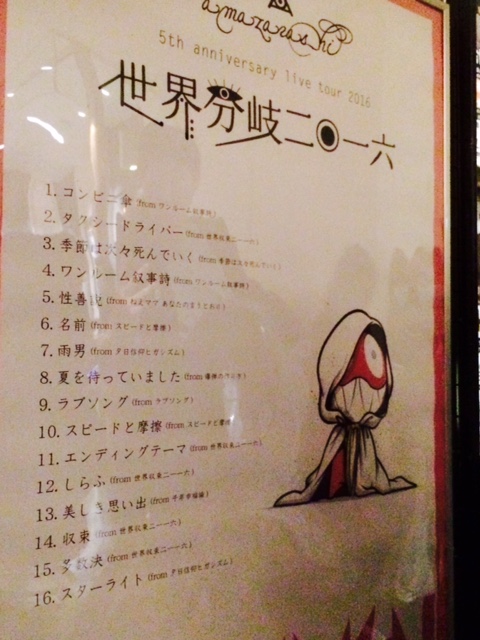 amazarashi
5th anniversary live tour 2016
世界分岐二〇一六
1. コンビニ傘 (from ワンルーム叙事詩)
2. タクシードライバー (from 世界収束二一一六)
3. 季節は次々死んでいく (from 季節は次々死んでいく)
4. ワンルーム叙事詩 (from ワンルーム叙事詩)
5. 性善説 (from ねえママ あなたの言うとおり)
6. 名前 (from スピードと摩擦)
7. 雨男 (from 夕日信仰ヒガシズム)
8. 夏を待っていました (from 爆弾の作り方)
9. ラブソング (from ラブソング)
10. スピードと摩擦 (from スピードと摩擦
11. エンディングテーマ (from 世界収束二一一六)
12. しらふ (from 世界収束二一一六)
13. 美しき思い出 (from 千年幸福論)
14. 収束 (from 世界収束二一一六)
15. 多数決 (from 世界収束二一一六)
16. スターライト (from 夕日信仰ヒガシズム)